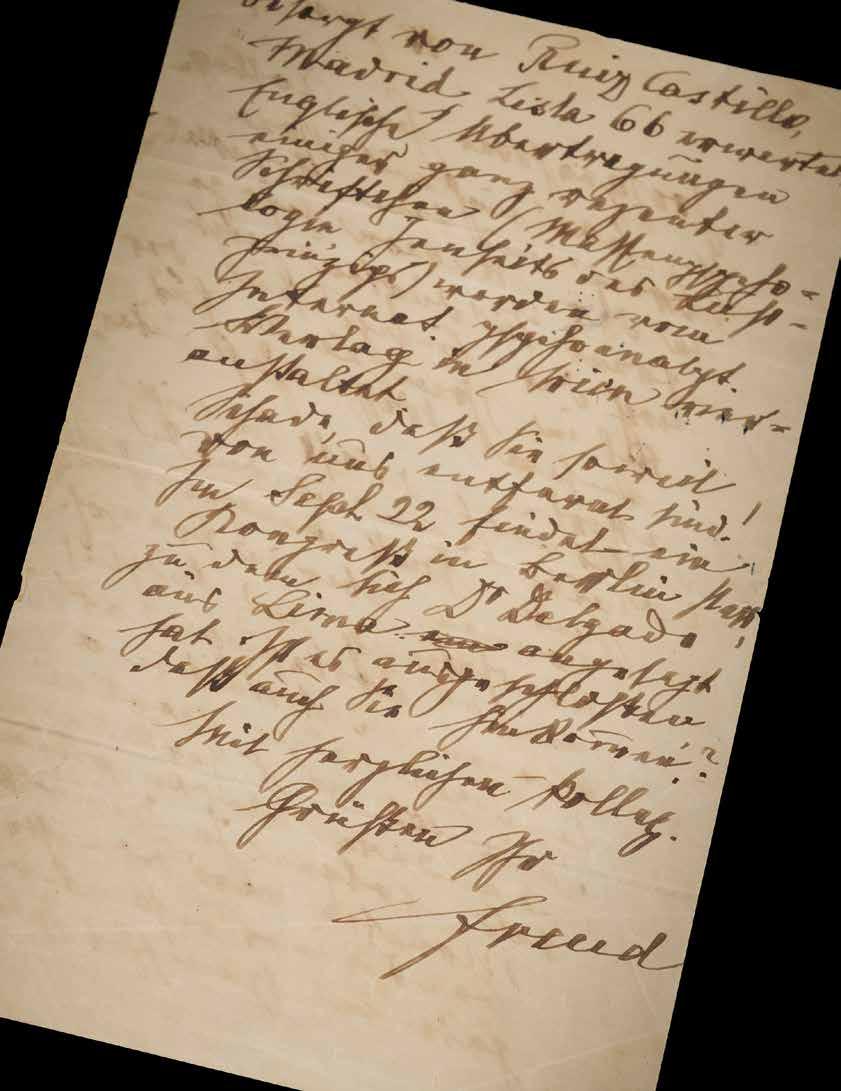 besorgt von Ruiz Castillo,
Madrid Lista 66 erwartet
Englische Übertragungen
einiger ganz rezenter
Schriftchen (Massenpsycho-
logie Jenseits des Lust-
prinzips) werden vom
Internat. Psychoanalyt.
Verlag in Wien ver-
anstaltet
Schade, daß Sie soweit
von uns entfernt sind!
Im Sept 22 findet ein
Kongreß in Berlin statt,
zu dem sich Dr Delgado
aus Lima angesagt
hat. Ist es ausgeschlossen
daß auch Sie hinkommen?
Mit herzlichen kolleg.
Grüßen Ihr
Freud